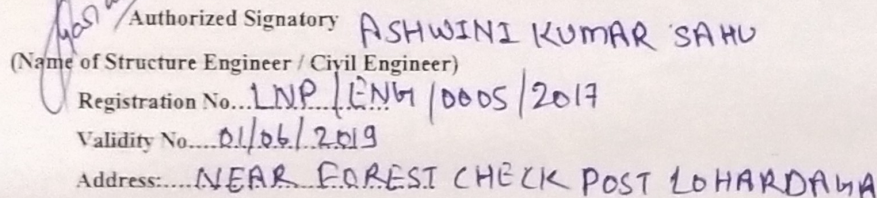 Authorized Signatory ASHWINI KUMAR SAHU
(Name of Structure Engineer / Civil Engineer)
Registration No...LNP/ENG/0005/2017
Validity No....01/06/2019
Address:.....NEAR FOREST CHECK POST LOHARDAGA